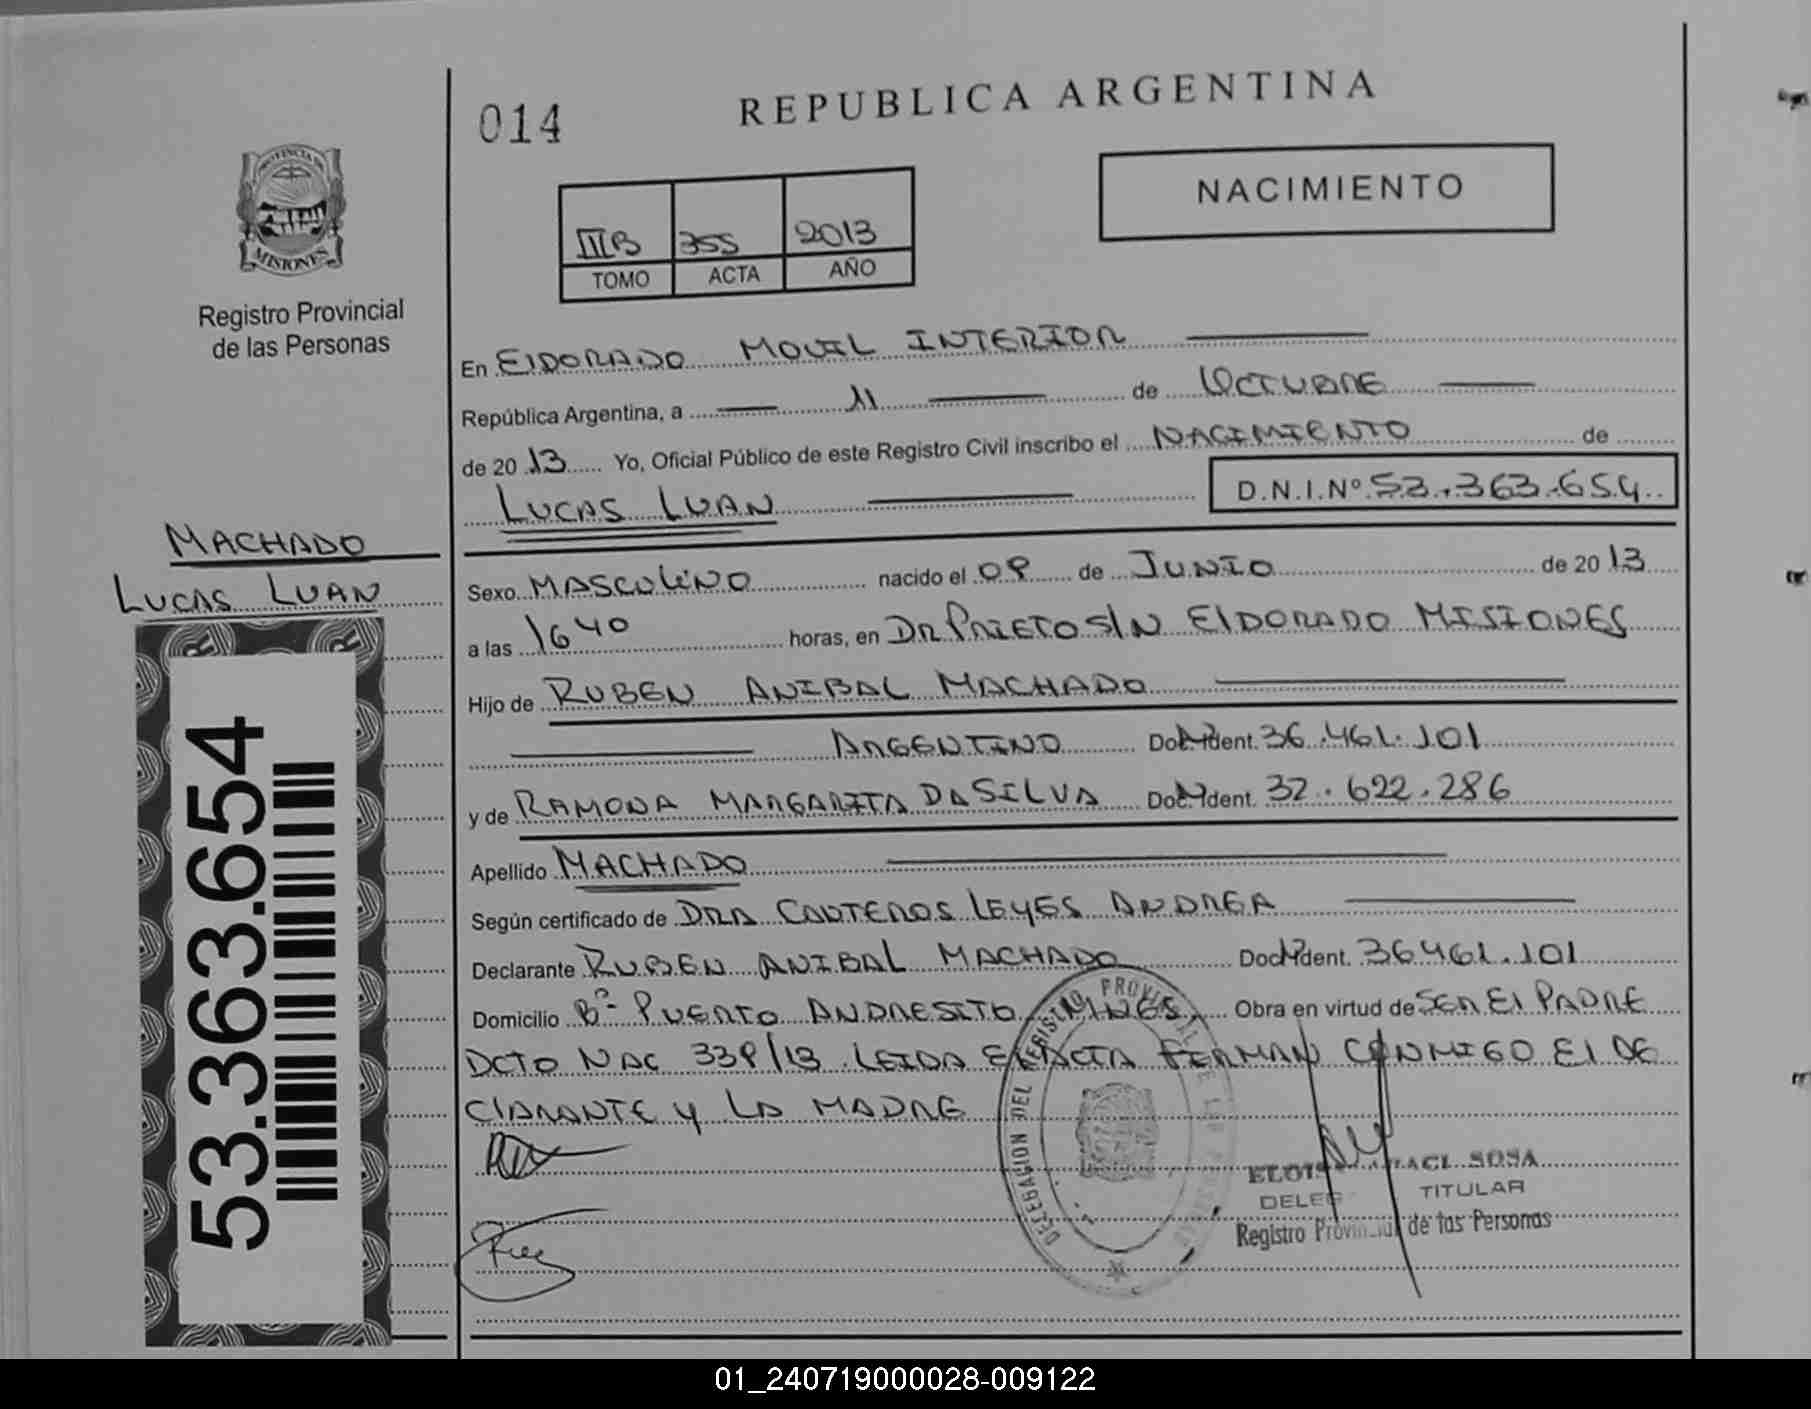 014
REPUBLICA ARGENTINA
PROVINCIA DE
MISIONES
Registro Provincial
de las Personas
NACIMIENTO
IIIB 355 2013
TOMO ACTA AÑO
En ELDORADO MOVIL INTERIOR
República Argentina, a 11 de OCTUBRE
de 2013 Yo, Oficial Público de este Registro Civil inscribo el NACIMIENTO de
LUCAS LUAN D.N.I.Nº 53.363.654
MACHADO
LUCAS LUAN
53.363.654
Sexo MASCULINO nacido el 09 de JUNIO de 2013
a las 1640 horas, en DR PRIETO S/N ELDORADO MISIONES
Hijo de RUBEN ANIBAL MACHADO
ARGENTINO Doc. Ident. 36.461.101
y de RAMONA MARGARITA DA SILVA Doc. Ident. 32.622.286
Apellido MACHADO
Según certificado de DRA LEYES ANDREA
Declarante RUBEN ANIBAL MACHADO Doc. Ident. 36461.101
Domicilio Bº PUERTO ANDRESITO MNES Obra en virtud de SER EL PADRE
DCTO NAC 339/13 LEIDA EL ACTA FIRMAN CONMIGO EL DE
CLARANTE Y LA MADRE
DELEGACION DEL REGISTRO PROVINCIAL DE LAS PERSONAS
SOSA
TITULAR
Registro Provincial de las Personas
01_240719000028-009122